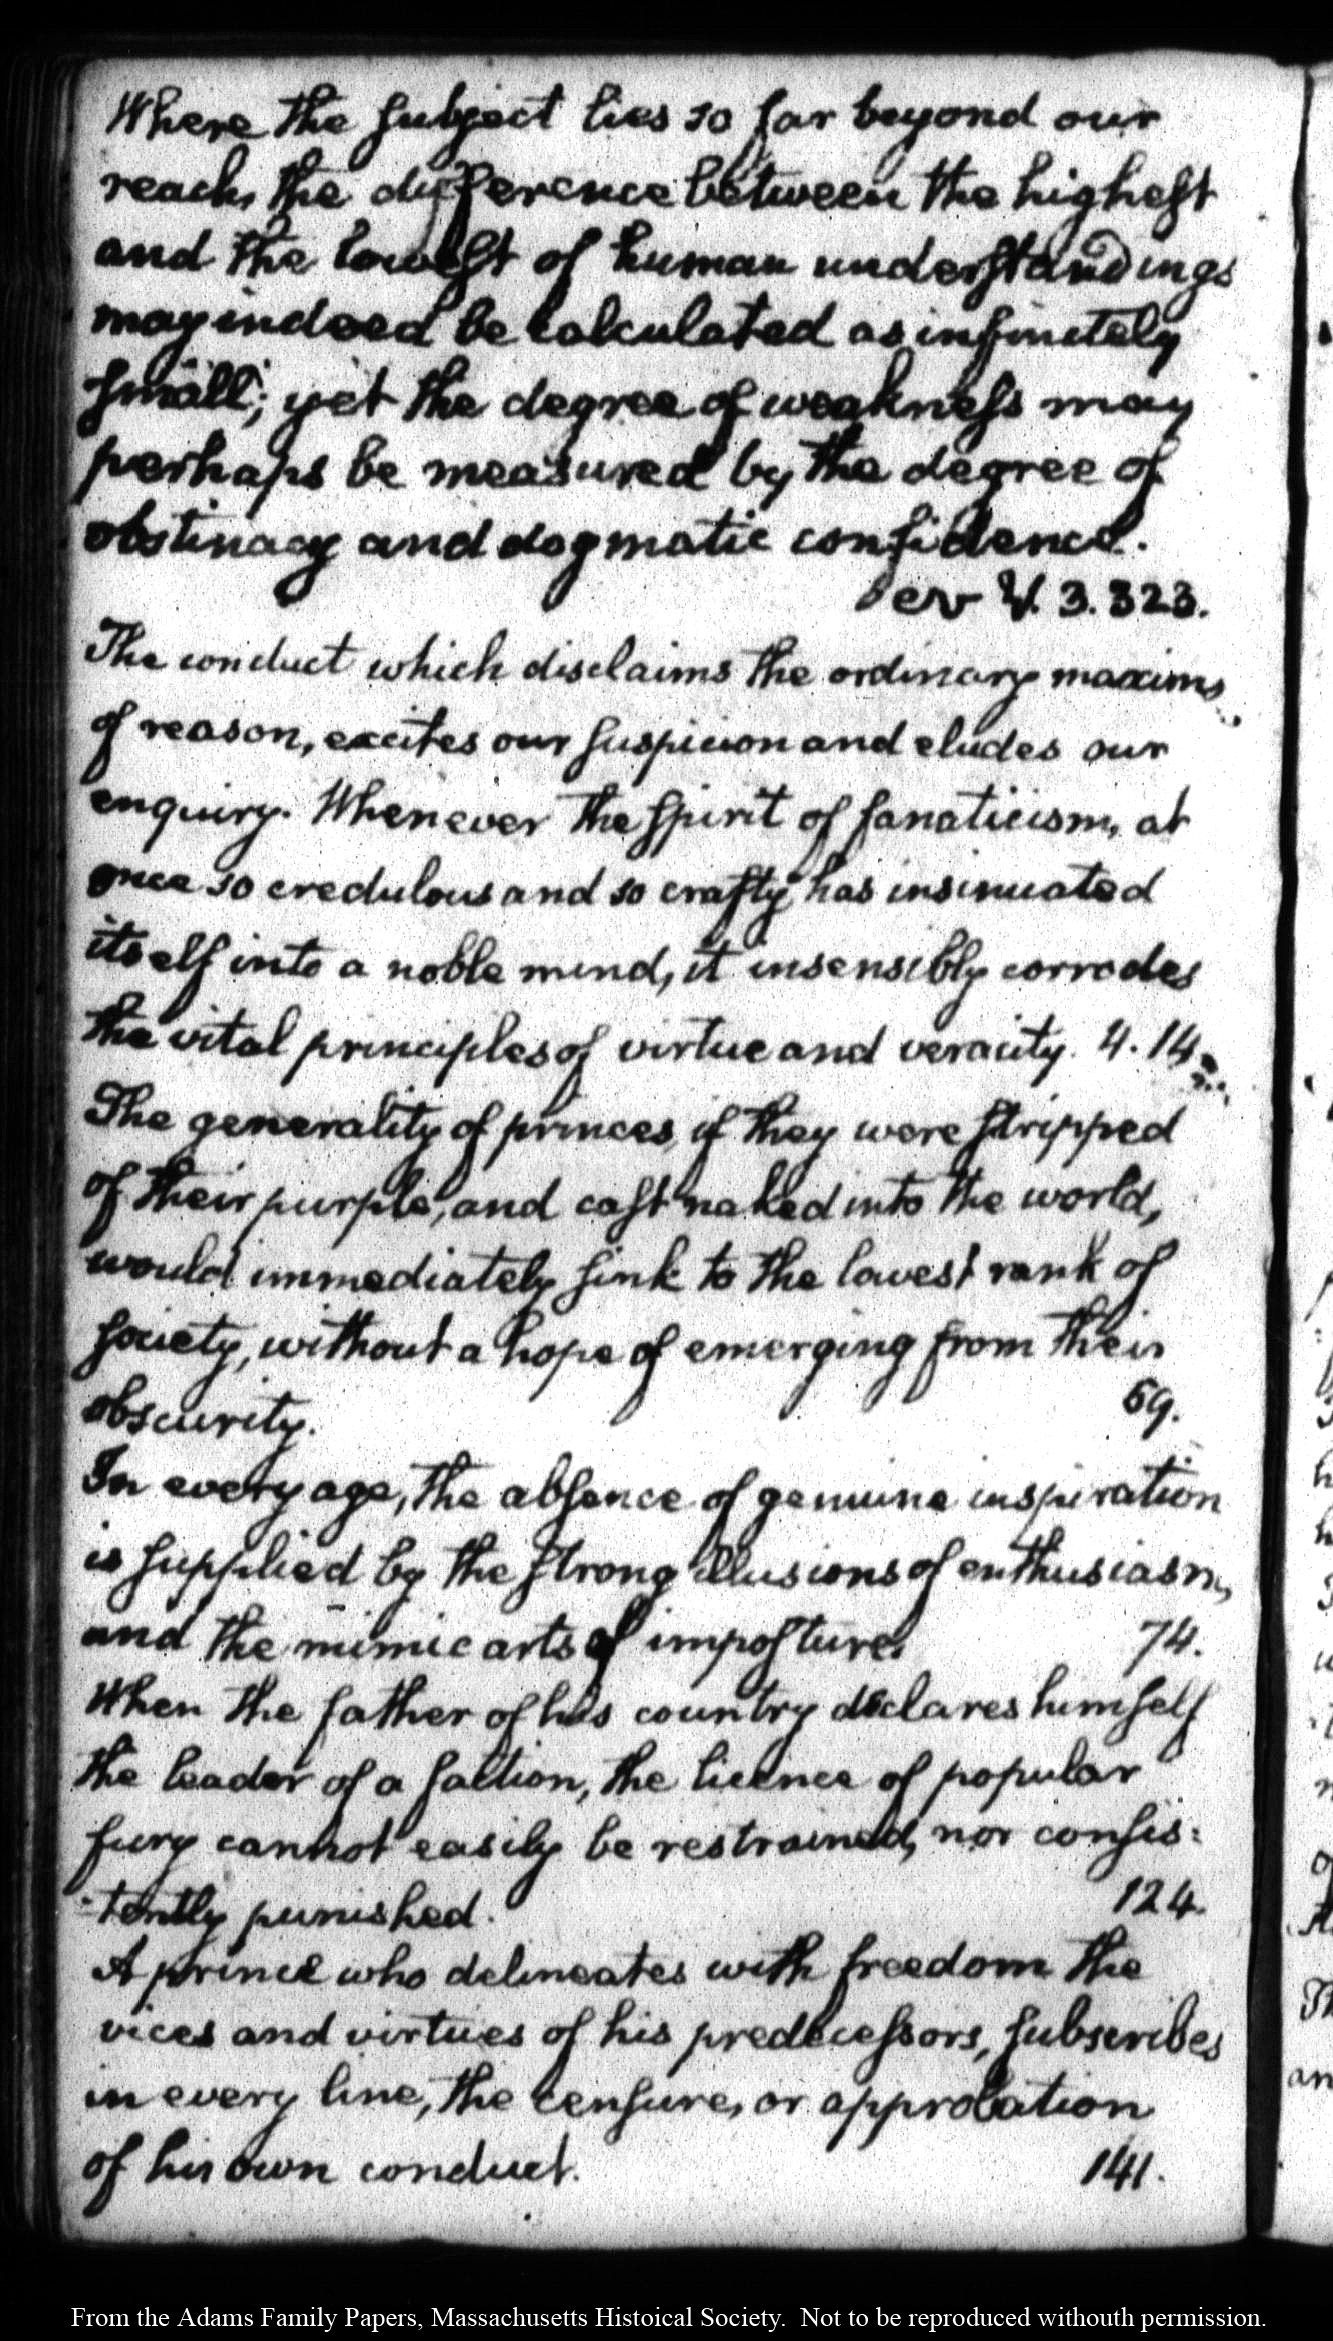 Where the subject lies so far beyond our
reach, the difference between the highest
and the lowest of human understandings
may indeed be calculated as infinitely
small; yet the degree of weakness may
perhaps be measured by the degree of
obstinacy and dogmatic confidence.
V. 3. 323.
The conduct which disclaims the ordinary maxims
of reason, excites our suspicion and eludes our
enquiry. Whenever the spirit of fanaticism, at
once so credulous and so crafty has insinuated
itself into a noble mind, it insensibly corrodes
the vital principles of virtue and veracity. 4. 14
The generality of princes, if they were stripped
of their purple, and cast naked into the world,
would immediately sink to the lowest rank of
society, without a hope of emerging from their
obscurity. 69.
In every age, the absence of genuine inspiration
is supplied by the strong illusions of enthusiasm,
and the mimic arts of imposture. 74.
When the father of his country declares himself
the leader of a faction, the licence of popular
fury cannot easily be restrained, nor consis:
-tently punished. 124.
A prince who delineates with freedom the
vices and virtues of his predecessors, subscribes
in every line, the censure, or approbation
of his own conduct. 141.
From the Adams Family Papers, Massachusetts Histoical Society. Not to be reproduced withouth permission.